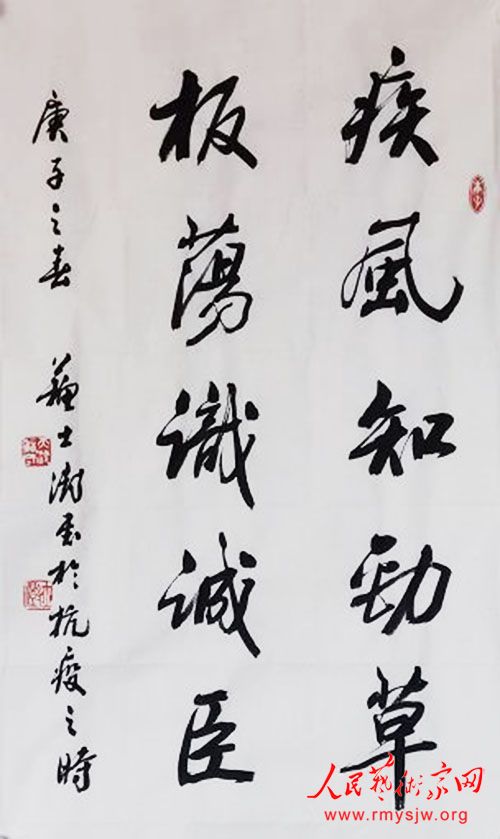 疾風知勁草
板蕩識誠臣
庚子之春 蘇士澍書於抗疫之時
人民藝術家网
www.rmysjw.org